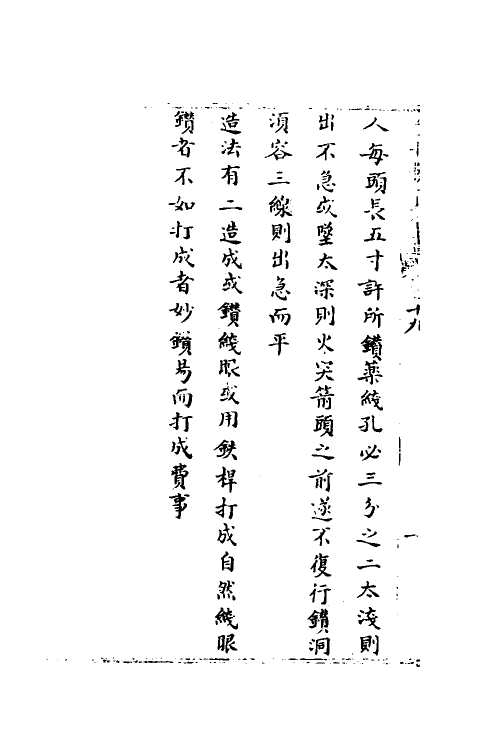 人每頭長五寸許所鑽藥線孔必三分之二太淺則
出不急或墜太深則火突箭頭之前遂不復行鑽洞
須容三線則出急而平
造法有二造成或鑽線眼或用鉄桿打成自然線眼
鑽者不如打成者妙鑽易而打成費事